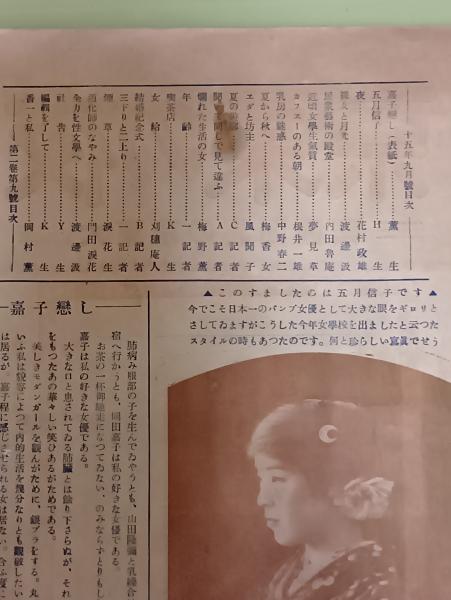 十五年九月號目次
嘉子戀し（表紙）……薫生
五月信子……H生
夜……花村政雄
女と月光……渡邊汲
民衆藝術の殿堂……内田魯庵
近頃女學生氣質……夢見草
カフエーのある朝……根井一雄
乳房の魅感……中野春二
夏から秋へ……梅香女
エダと坊主……風聞子
夏の……C記者
聞いて見て違ふ……A記者
爛れた生活の女……梅野薫
年齢……一記者
喫茶店……K生
女給……刈穗庵人
結婚記念式……B記者
三下りと二上り……一記者
煙草……涙花生
道化師のなやみ……門田涙花
全力を性文學へ……渡邊汲
社告……Y生
編輯を了して……K生
番一と私……岡村薫
第二卷第九號目次
▲このすましたのは五月信子です▲
今でこそ日本一のバンプ女優として大きな眼をギロリと
さしてゐますがこうした今年女學校を出ましたと云つた
スタイルの時もあつたのです。何と珍らしい寫眞でせう
嘉子戀し
肺病み服部の子を生んでゐやうとも、山田隆彌と乳繰合
宿へ行かうとも、岡田嘉子は私の好きな女優である。
お茶の一杯御馳走になつてゐない、のみならずとりもし
嘉子は私の好きな女優である。
大きな口と患されてゐる肺臓とは餘り下さらぬが、それ
をもつたあの華々しい笑ひあるがためである。
美しきモダンガールを觀んがために、銀ブラをする。丸
いふ私は貌容によつて内的生活を幾分なりとも觀破したい
は居るが、嘉子程に感じさせられる女は居ない。